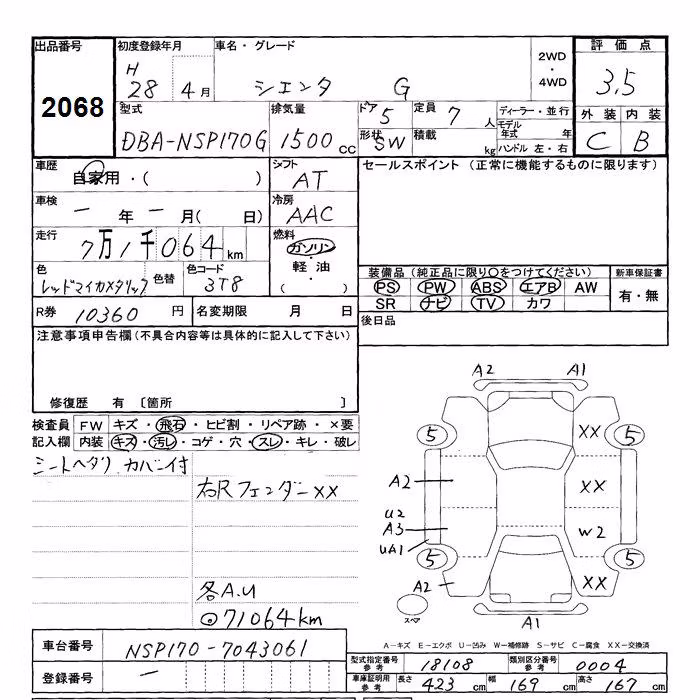 出品番号 初度登録年月 車名・グレード 2WD ・ 4WD 評価点
2068 H 28 4月 シエンタ G 3.5
型式 排気量 ドア 5 定員 7人 ディーラー・並行 外装 内装
DBA-NSP170G 1500cc 形状 SW 積載 kg モデル年式 年 ハンドル 左・右 C B
車歴 自家用・( ) シフト AT セールスポイント (正常に機能するものに限ります)
車検 ー年ー月( 日) 冷房 AAC
走行 7万1千064km 燃料 ガソリン・軽油・( )
色 レッドマイカメタリック 色替 色コード 3T8
装備品 (純正品に限り○をつけてください) 新車保証書
PS PW ABS エアB AW 有・無
SR ナビ TV カワ
R券 10360円 名変期限 月 日 後日品
注意事項申告欄 (不具合内容等は具体的に記入して下さい)
修復歴 有 [箇所 ]
検査員 FW キズ・飛石・ヒビ割・リペア跡・×要
記入欄 内装 キズ・汚レ・コゲ・穴・スレ・キレ・破レ
カバー付
右RフェンダーXX
各A.U
◎71064km
A2 A1
5 XX 5
A2 XX
U2
A3 W2
UA1
5 5
A2 XX
スペア A1
A-キズ E-エクボ U-凹み W-補修跡 S-サビ C-腐食 XX-交換済
車台番号 NSP170-7043061
型式指定番号 参考 18108 類別区分番号 参考 0004
登録番号 ー
車庫証明用 参考 長さ 423cm 幅 169cm 高さ 167cm